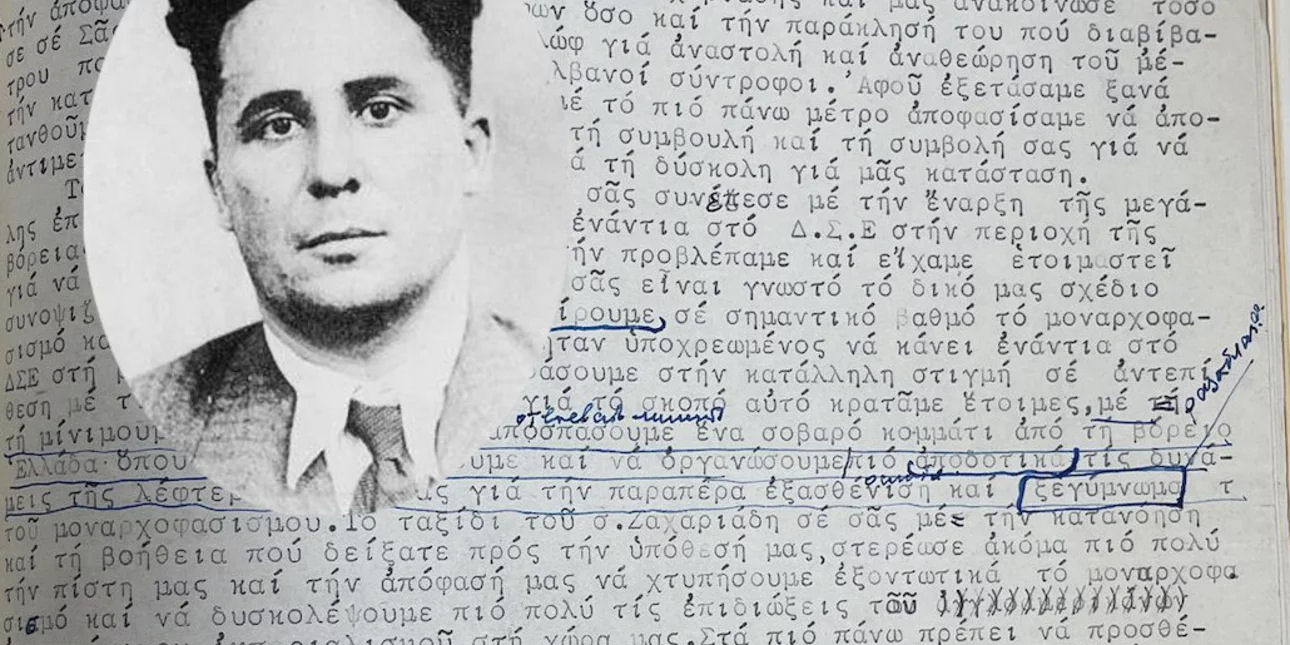 τήν ἀπόφα καί μᾶς ἀνακοίνωσε τόσο
σε σέ Σᾶς ων ὅσο καί τήν παράκλησή του πού διαβίβα-
τρου πα λώφ γιά ἀναστολή καί ἀναθεώρηση τοῦ μέ-
τήν κατ λβανοί σύντροφοι. Ἀφοῦ ἐξετάσαμε ξανά
τανθοῦμ ιέ τό πιό πάνω μέτρο ἀποφασίσαμε νά ἀπο-
ἀντιμετ τή συμβουλή καί τή συμβολή σας γιά νά
Τ ά τή δύσκολη γιά μᾶς κατάσταση.
λης ἐπ σᾶς συνέπεσε μέ τήν ἔναρξη τῆς μεγά-
βόρεια ἐνάντια στό Δ.Σ.Ε στήν περιοχή τῆς
γιά νά ήν προβλέπαμε καί εἴχαμε ἑτοιμαστεῖ
συνοψιζ σᾶς εἶναι γνωστό τό δικό μας σχέδιο
σισμό κα ίρουμε σέ σημαντικό βαθμό τό μοναρχοφα-
ΔΣΕ στή ἦταν ὑποχρεωμένος νά κάνει ἐνάντια στό
θεση μέ τ άσουμε στήν κατάλληλη στιγμή σέ ἀντεπί
γιά τό σκοπό αὐτό κρατᾶμε ἕτοιμες, μέ τή
τή μίνιμουμ ἀποσπάσουμε ἕνα σοβαρό κομμάτι ἀπό τή βόρειο
Ἑλλάδα ὅπου ουμε καί νά ὀργανώσουμε πιό ἀποδοτικά τίς δυνά-
μεις τῆς λέφτερ ας γιά τήν παραπέρα ἐξασθένιση καί ξεγύμνωμα τ
τοῦ μοναρχοφασισμου. Τό ταξίδι τοῦ σ. Ζαχαριάδη σέ σᾶς μέ τήν κατανόηση
καί τή βοήθεια πού δείξατε πρός τήν ὑπόθεσή μας, στερέωσε ἀκόμα πιό πολύ
τήν πίστη μας καί τήν ἀπόφασή μας νά χτυπήσουμε ἐξοντωτικά τό μοναρχοφα
σισμό καί νά δυσκολέψουμε πιό πολύ τίς ἐπιδιώξεις τοῦ
ιμπεριαλισμοῦ στή χώρα μας. Στά πιό πάνω πρέπει νά προσθέ-